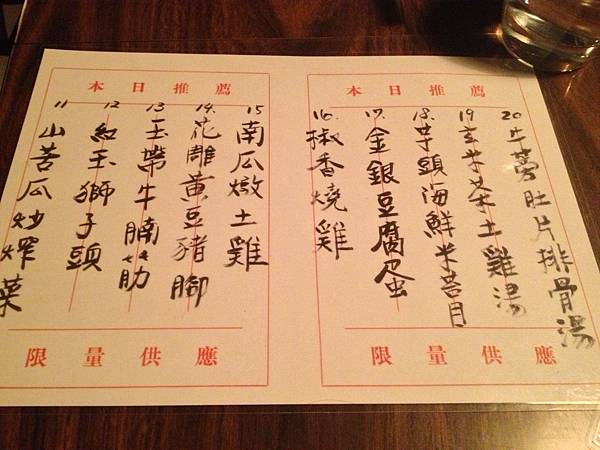 本日推薦
20 牛蒡肚片排骨湯
19 玄米茶土雞湯
18. 芋頭海鮮米苔目
17. 金銀豆腐蛋
16. 椒香燒雞
限量供應
本日推薦
15 南瓜燉土雞
14. 花雕黃豆豬腳
13 玉帶牛腩牛肋
12 紅玉獅子頭
11 山苦瓜炒炸菜
限量供應